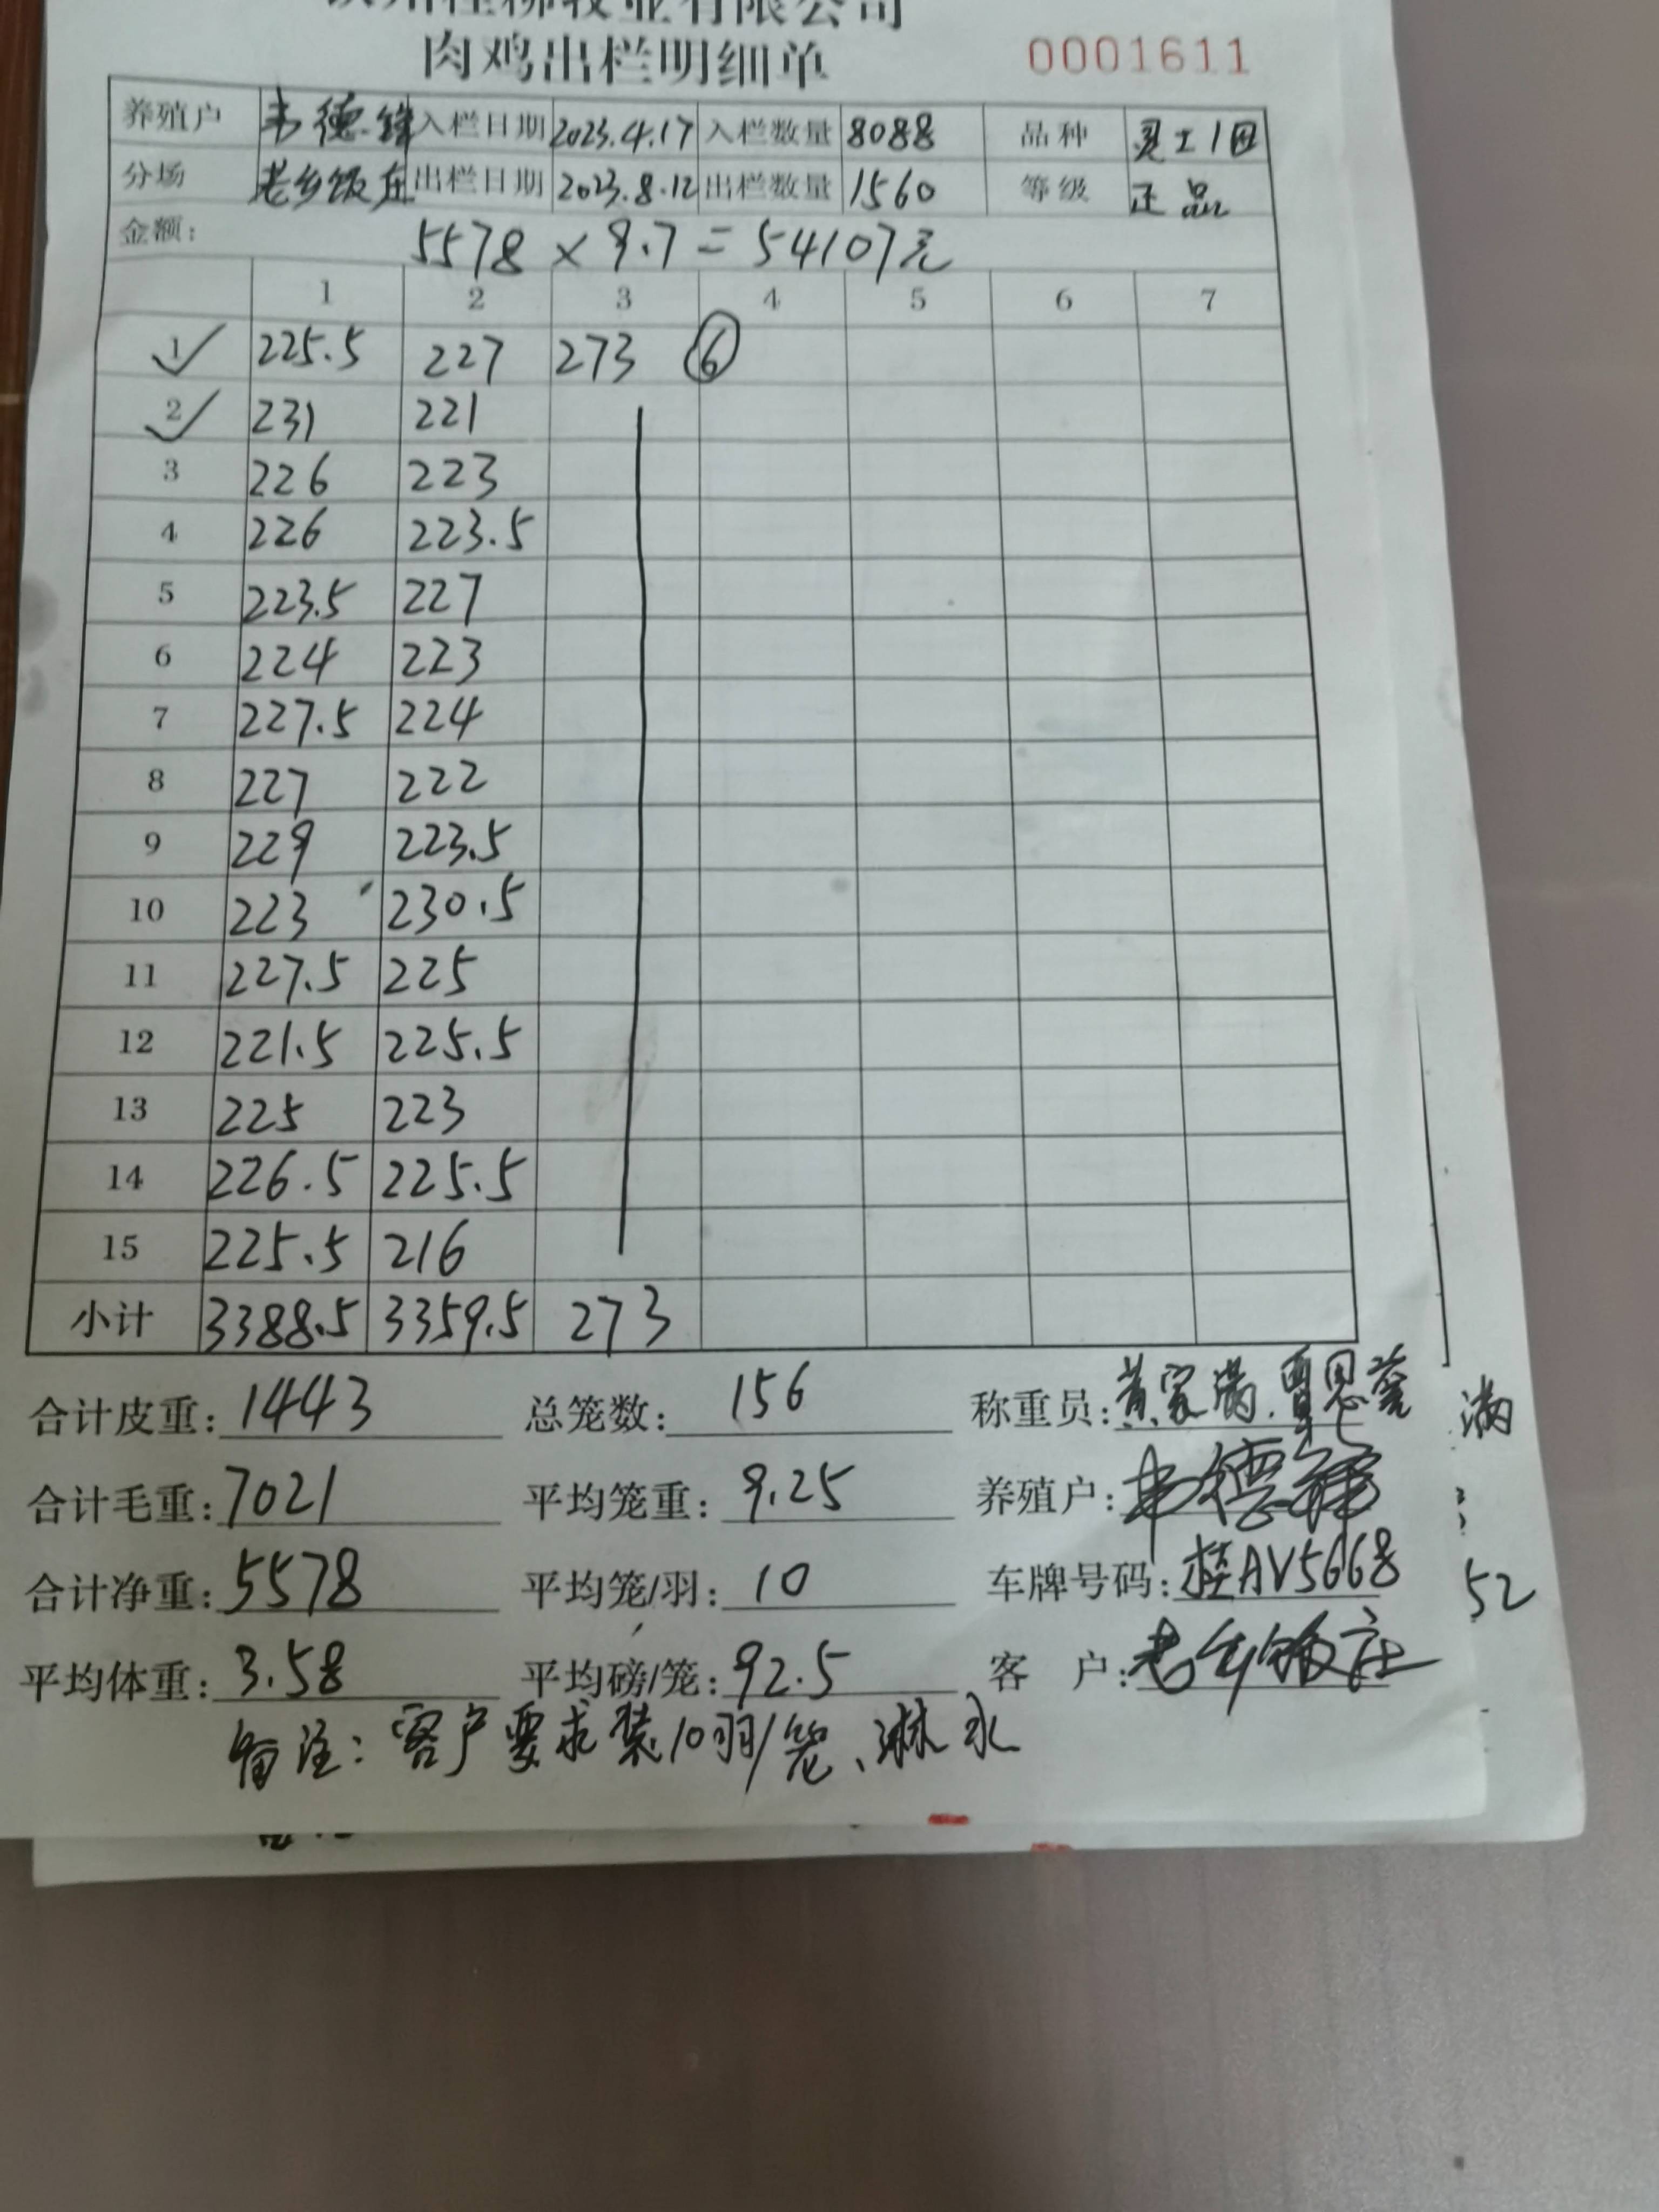 牧业有限公司
肉鸡出栏明细单 0001611
养殖户 韦德锋 入栏日期 2023.4.17 入栏数量 8088 品种 灵土1国
分场 老乡饭庄 出栏日期 2023.8.12 出栏数量 1560 等级 正品
金额: 5578 × 9.7 = 54107元
1 2 3 4 5 6 7
1 225.5 227 273 6
2 231 221
3 226 223
4 226 223.5
5 223.5 227
6 224 223
7 227.5 224
8 227 222
9 229 223.5
10 223 230.5
11 227.5 225
12 221.5 225.5
13 225 223
14 226.5 225.5
15 225.5 216
小计 3388.5 3359.5 273
合计皮重: 1443 总笼数: 156 称重员: 黄家满. 满
合计毛重: 7021 平均笼重: 9.25 养殖户: 韦德锋
合计净重: 5578 平均笼/羽: 10 车牌号码: 桂AV5668 52
平均体重: 3.58 平均磅/笼: 92.5 客 户: 老乡饭庄
备注: 客户要求装10羽/笼、淋水